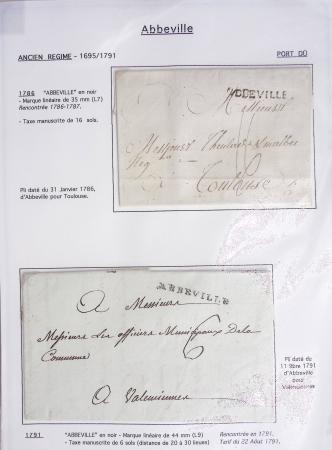 Abbeville
ANCIEN REGIME - 1695/1791
PORT DÛ
1786 "ABBEVILLE" en noir
- Marque linéaire de 35 mm (L7)
Rencontrée 1786-1787.
- Taxe manuscrite de 16 sols.
Pli daté du 31 Janvier 1786,
d'Abbeville pour Toulouse.
ABBEVILLE
A Messieurs
Messieurs
Toulouse
ABBEVILLE
A Messieurs
Messieurs Les officiers Municipaux De la
Commune
6
A Valenciennes
Pli daté du
11 9bre 1791
d'Abbeville
pour
Valenciennes
1791 "ABBEVILLE" en noir - Marque linéaire de 44 mm (L9)
- Taxe manuscrite de 6 sols (distance de 20 à 30 lieues)
Rencontrée en 1791.
Tarif du 22 Août 1791.